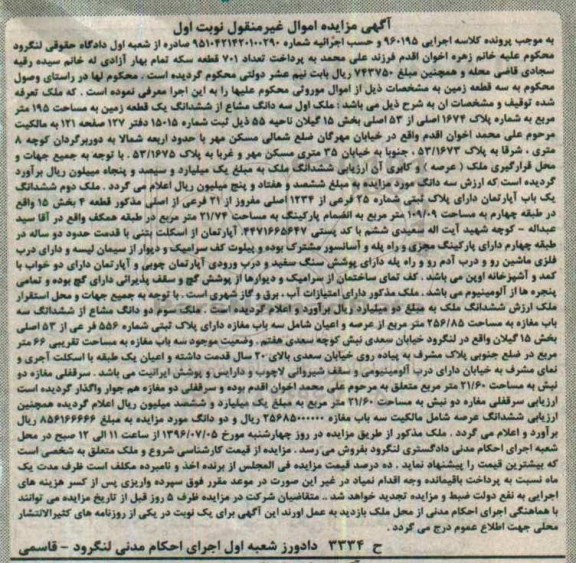 آگهی مزایده اموال غیرمنقول نوبت اول
به موجب پرونده کلاسه اجرایی ۹۶۰۱۹۵ و حسب اجرائیه شماره ۹۵۱۰۴۲۱۴۲۰۱۰۰۲۹۰ صادره از شعبه اول دادگاه حقوقی لنگرود
محکوم علیه خانم زهره اخوان اقدم فرزند علی محمد به پرداخت تعداد ۷۰۱ قطعه سکه تمام بهار آزادی له خانم سیده رقیه
سجادی قاضی محله و همچنین مبلغ ۷۴۳۷۵۰ ریال بابت نیم عشر دولتی محکوم گردیده است . محکوم لها در راستای وصول
محکوم به سه قطعه زمین به مشخصات ذیل از اموال موروثی محکوم علیها را به این اجرا معرفی نموده است . که ملک تعرفه
شده توقیف و مشخصات ان به شرح ذیل می باشد : ملک اول سه دانگ مشاع از ششدانگ یک قطعه زمین به مساحت ۱۹۵ متر
مربع به شماره پلاک ۱۶۷۴ اصلی از ۵۳ اصلی بخش ۱۵ گیلان ناحیه ۵۵ ذیل ثبت شماره ۱۵۰۱۵ دفتر ۱۲۷ صفحه ۱۲۱ به مالکیت
مرحوم علی محمد اخوان اقدم واقع در خیابان مهرگان ضلع شمالی مسکن مهر با حدود اربعه شمالا به دوربرگردان کوچه ۸
متری ، شرقا به پلاک ۵۳/۱۶۷۳ ، جنوبا به خیابان ۳۵ متری مسکن مهر و غربا به پلاک ۵۳/۱۶۷۵ . با توجه به جمیع جهات و
محل قرارگیری ملک (عرصه ) و کابری آن ارزیابی ششدانگ ملک به مبلغ یک میلیارد و سیصد و پنجاه میبلون ریال برآورد
گردیده است که ارزش سه دانگ مورد مزایده به مبلغ ششصد و هفتاد و پنج میلیون ریال اعلام می گردد . ملک دوم ششدانگ
یک باب آپارتمان دارای پلاک ثبتی شماره ۲۵ فرعی از ۱۲۳۴ اصلی مفروز از ۲۱ فرعی از اصلی مذکور قطعه ۴ بخش ۱۵ واقع
در طبقه چهارم به مساحت ۱۰۹/۰۹ متر مربع به انضمام پارکینگ به مساحت ۲۱/۷۴ متر مربع در طبقه همکف واقع در آقا سید
عبداله - کوچه شهید آیت اله سعیدی ششم با کد پستی ۴۴۷۱۶۶۵۶۴۷. آپارتمان از اسکلت بتنی با قدمت حدود دو ساله در
طبقه چهارم دارای پارکینگ مجزی و راه پله و آسانسور مشترک بوده و پیلوت کف سرامیک و دیوار از سیمان لیسه و دارای درب
فلزی ماشین رو و درب آدم رو و راه پله دارای پوشش سنگ سفید و درب ورودی آپارتمان چوبی و آپارتمان دارای دو خواب با
کمد و آشپزخانه اوپن می باشد . کف تمای ساختمان از سرامیک و دیوارها از پوشش گچ و سقف پذیرائی دارای گچ بوده و تمامی
پنجره ها از آلومینیوم می باشد . ملک مذکور دارای امتیازات آب ، برق و گاز شهری است . با توجه به جمیع جهات و محل استقرار
ملک ارزش ششدانگ ملک به مبلغ دو میلیارد ریال برآورد و اعلام گردیده است . ملک سوم دو دانگ مشاع از ششدانگ سه
باب مغازه به مساحت ۲۵۶/۸۵ متر مربع از عرصه و اعیان شامل سه باب مغازه دارای پلاک ثبتی شماره ۵۵۶ فر عی از ۵۳ اصلی
بخش ۱۵ گیلان واقع در لنگرود خیابان سعدی نبش کوچه سعدی هفتم . وضعیت موجود سه باب مغازه به مساحت تقریبی ۶۶ متر
مربع در ضلع جنوبی پلاک مشرف به پیاده روی خیابان سعدی بالای ۲۰ سال قدمت داشته و اعیان یک طبقه با اسکلت آجری و
نمای مشرف به خیابان دارای درب آلومینیومی و سقف شیروانی لاچوب و دارایش و پوشش ایرانیت می باشد . سرقفلی مغازه دو
نبش به مساحت ۲۱/۶۰ متر مربع متعلق به مرحوم علی محمد اخوان اقدم بوده و سرقفلی دو مغازه هم جوار واگذار گردیده است
ارزیابی سرقفلی مغازه دو نبش به مساحت ۲۱/۶۰ متر مربع به مبلغ یک میلیارد و ششصد میلیون ریال اعلام گردیده همچنین
ارزیابی ششدانگ عرصه شامل مالکیت سه باب مغازه ۲۵۶۸۵۰۰۰۰۰۰ ریال و دو دانگ مورد مزایده به مبلغ ۸۵۶۱۶۶۶۶۶ ریال
برآورد و اعلام می گردد . ملک مذکور از طریق مزایده در روز چهارشنبه مورخ ۱۳۹۶/۰۷/۰۵ از ساعت ۱۱ الی ۱۲ صبح در محل
شعبه اجرای احکام مدنی دادگستری لنگرود بفروش می رسد . مزایده از قیمت کارشناسی شروع و ملک متعلق به شخصی است
که بیشترین قیمت را پیشنهاد نماید . ده درصد قیمت مزایده فی المجلس از برنده اخذ و نامبرده مکلف است ظرف مدت یک
ماه نسبت به پرداخت باقیمانده وجه اقدام نمیاد در غیر این صورت در موعد مقرر فوق سپرده واریزی پس از کسر هزینه های
اجرایی به نفع دولت ضبط و مزایده تجدید خواهد شد .. متقاضیان شرکت در مزایده ظرف ۵ روز قبل از تاریخ مزایده می توانند
با هماهنگی اجرای احکام مدنی از محل ملک بازدید به عمل اورند این آگهی برای یک نوبت در یکی از روزنامه های کثیرالانتشار
محلی جهت اطلاع عموم درج می گردد .
ح ۳۳۳۴ دادورز شعبه اول اجرای احکام مدنی لنگرود - قاسمی